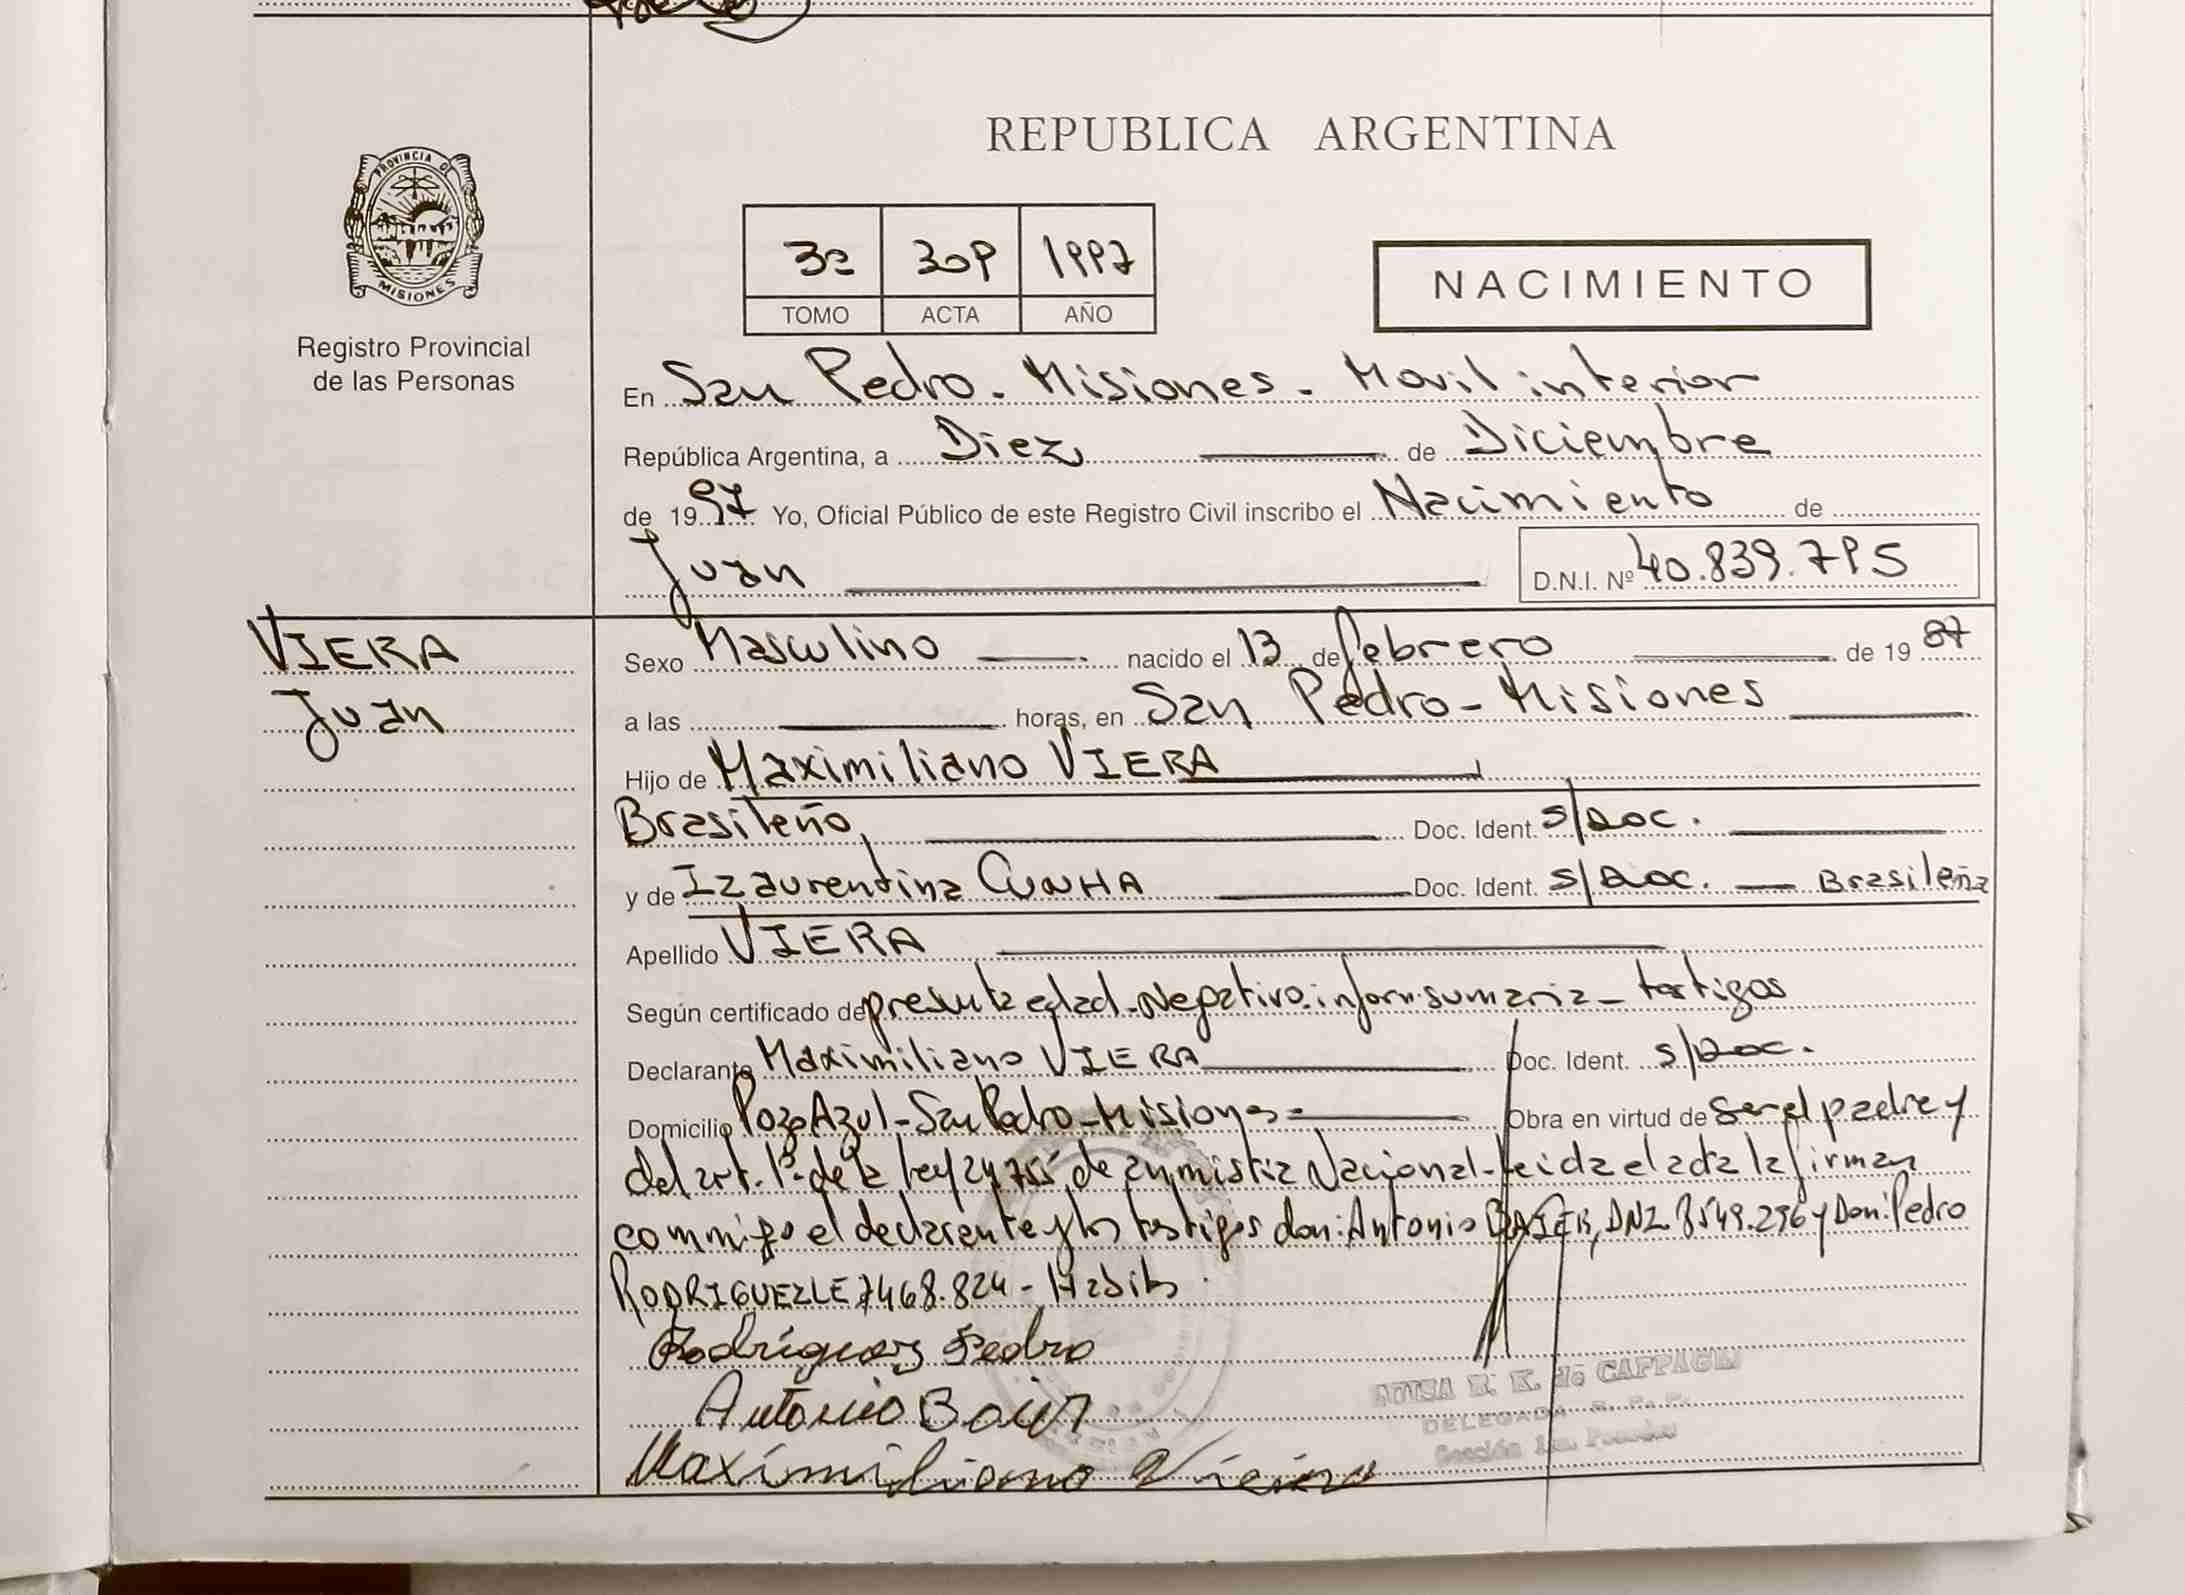 REPUBLICA ARGENTINA
PROVINCIA DE
MISIONES
Registro Provincial
de las Personas
3º 309 1997
TOMO ACTA AÑO
NACIMIENTO
En San Pedro - Misiones - Movil interior
República Argentina, a Diez de Diciembre
de 1997 Yo, Oficial Público de este Registro Civil inscribo el Nacimiento de
Juan D.N.I. Nº 40.839.795
VIERA
Juan
Sexo Masculino nacido el 13 de febrero de 1987
a las horas, en San Pedro - Misiones
Hijo de Maximiliano VIERA
Brasileño, Doc. Ident. s/doc.
y de Izaurentina CUNHA Doc. Ident. s/doc. Brasileña
Apellido VIERA
Según certificado de presunta edad - Negativo - inform. sumaria - testigos
Declarante Maximiliano VIERA Doc. Ident. s/doc.
Domicilio Pozo Azul - San Pedro - Misiones - Obra en virtud de ser el padre y
del art. 1º de la ley 24.755 de amnistia Nacional - leida el acta la firman
conmigo el declarante y los testigos don: Antonio DNI. 8549.296 y Don: Pedro
RODRIGUEZ LE 7468.824 - Habits
Rodríguez Pedro
Antonio Baier
Maximiliano Vieira
DE CAPPAGLI
DELEGADA R. P. P.
Sección San Pedro